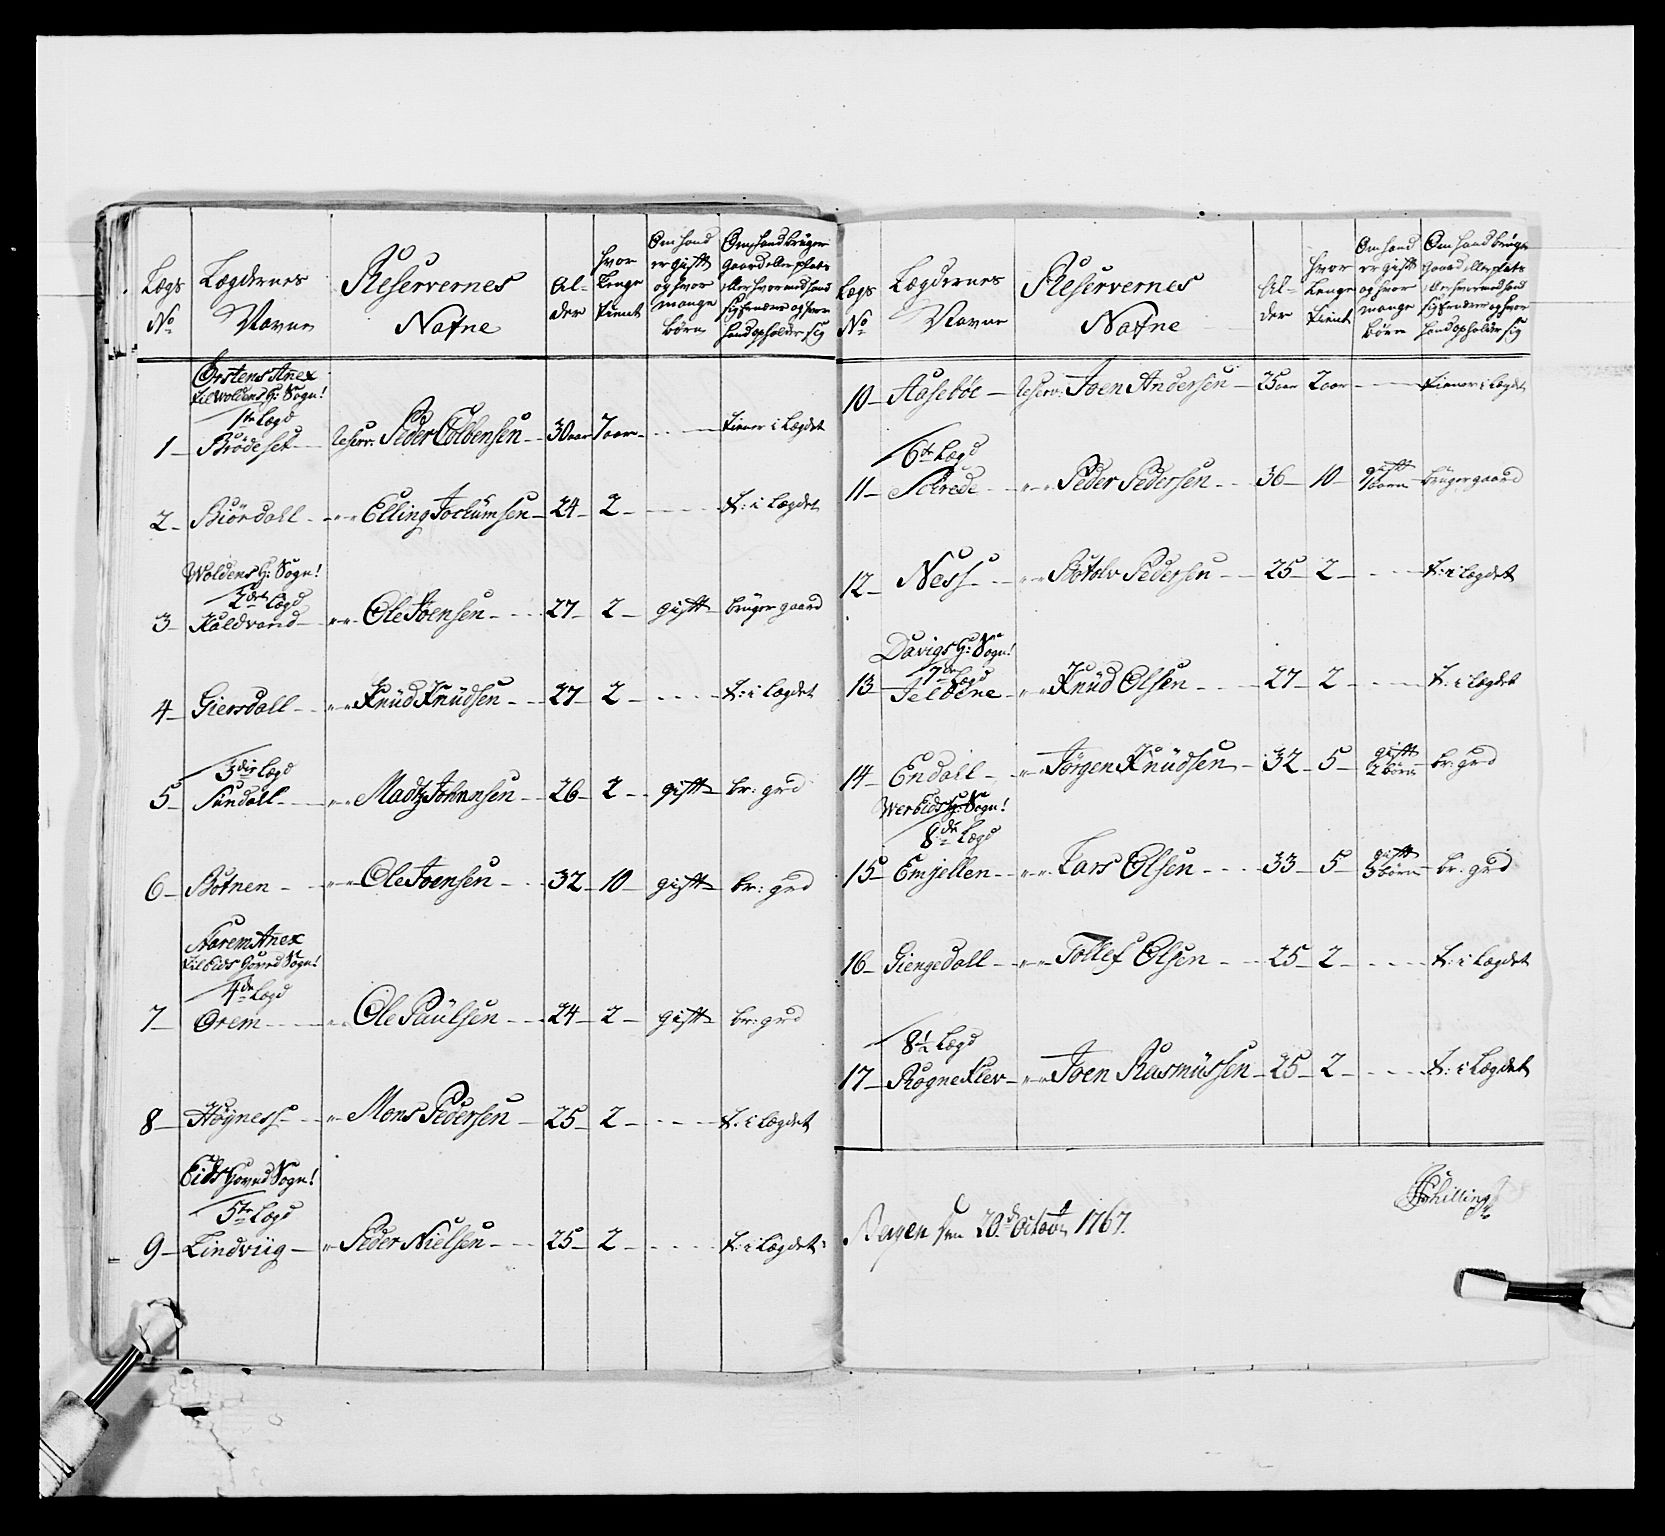 Lægs No | Lægdernes Navne | Reservernes Nafne | Al- der | hvor Lenge tient | Om hand er gift og hvor mange børn | Om hand brüger gaard eller plats eller hvor med hand sig ernærer og hvor hand opholder sig
Ørstens Anex
til Woldens H: Sogn!
1te Lægd
1 – Brödeset – Reserv: Peder Colbensen – 30 aar 7 aar – – tiener i Lægdet
2 – Biördall – " " Elling Jochumsen – 24 – 2 – – t: i Lægdet
Woldens H: Sogn!
2det Lægd
3 – Kaldvand – " " Ole Joensen – 27 – 2 – gift – brüger gaard
4 – Giersdall – " " Knüd Knüdsen – 27 – 2 – – t: i Lægdet
3die Lægd
5 – Sündall – " " Madtz Johansen – 26 – 2 – gift – br: grd
6 – Botnen – " " Ole Joensen – 32 – 10 – gift – br: grd
Narem Anex
til Eids Hoved Sogn!
4de Lægd
7 – Orem – " " Ole Paülsen – 24 – 2 – gift – br: grd
8 – Høgness – " Mons Pedersen – 25 – 2 – – t. i Lægdet
Eids Hoved Sogn!
5te Lægd
9 – Lindviig – " Peder Nielsen – 25 – 2 – – t: i Lægdet
Lægs No | Lægdernes Navne | Reservernes Nafne | Al- der | hvor Lenge tient | Om hand er gift og hvor mange børn | Om hand brüger gaard eller plats eller hvor med hand sig ernærer og hvor hand opholder sig
10 – Aasebøe – Reserv: Joen Andersen – 25 aar 2 aar – – tiener i Lægdet
6te Lægd
11 – Skrede – " " Peder Pedersen – 36 – 10 – gift 1 barn – brüger gaard
12 – Ness – " " Botolv Pedersen – 25 – 2 – – t: i Lægdet
Davigs H: Sogn!
7de Lægd
13 – – " " Knüd Olsen – 27 – 2 – – t. i Lægdet
14 – Endall – " " Jørgen Knüdsen – 32 – 5 – gift 2 børn – br: grd
Wereids H: Sogn!
8de Lægd
15 – Emjellen – " " Lars Olsen – 33 – 5 – gift 3 børn – br. grd
16 – Giengedall – " " Tollef Olsen – 25 – 2 – – t. i Lægdet
8½ Lægd
17 – Rogneklev – " " Joen Rasmüssen – 25 – 2 – – t: i Lægdet
Schilling
Bergen den 20de Octobr 1767.